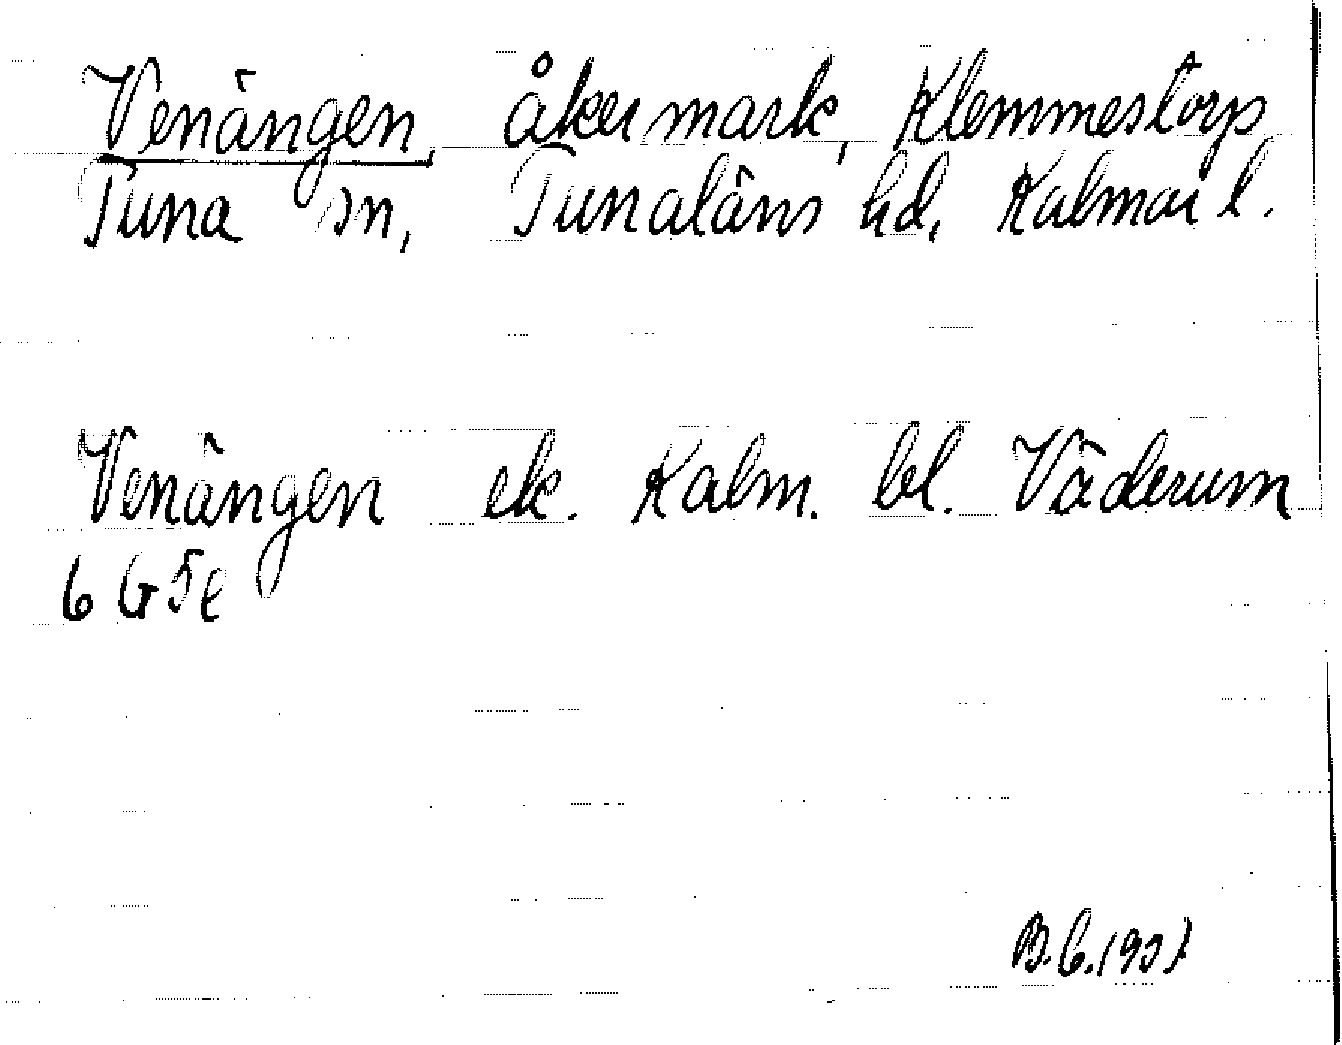 Venängen, åkermark, Klemmestorp,
Tuna sn, Tunaläns hd, Kalmar l.
Venängen ek. Kalm. bl. Väderum
6 G 5e